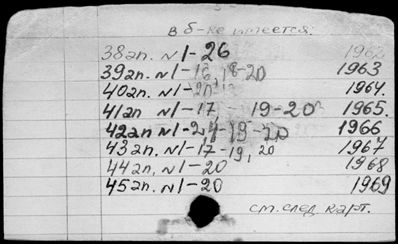 в б-ке имеется:
38ап. №1-26 1962
39ап. №1-16, 18-20 1963
40ап. №1-20 1964.
41ап №1-17, 19-20 1965.
42ап №1-2, 4-19-20 1966
43ап. №1-17-19, 20 1967
44ап. №1-20 1968
45ап. №1-20 1969
см. след. карт.